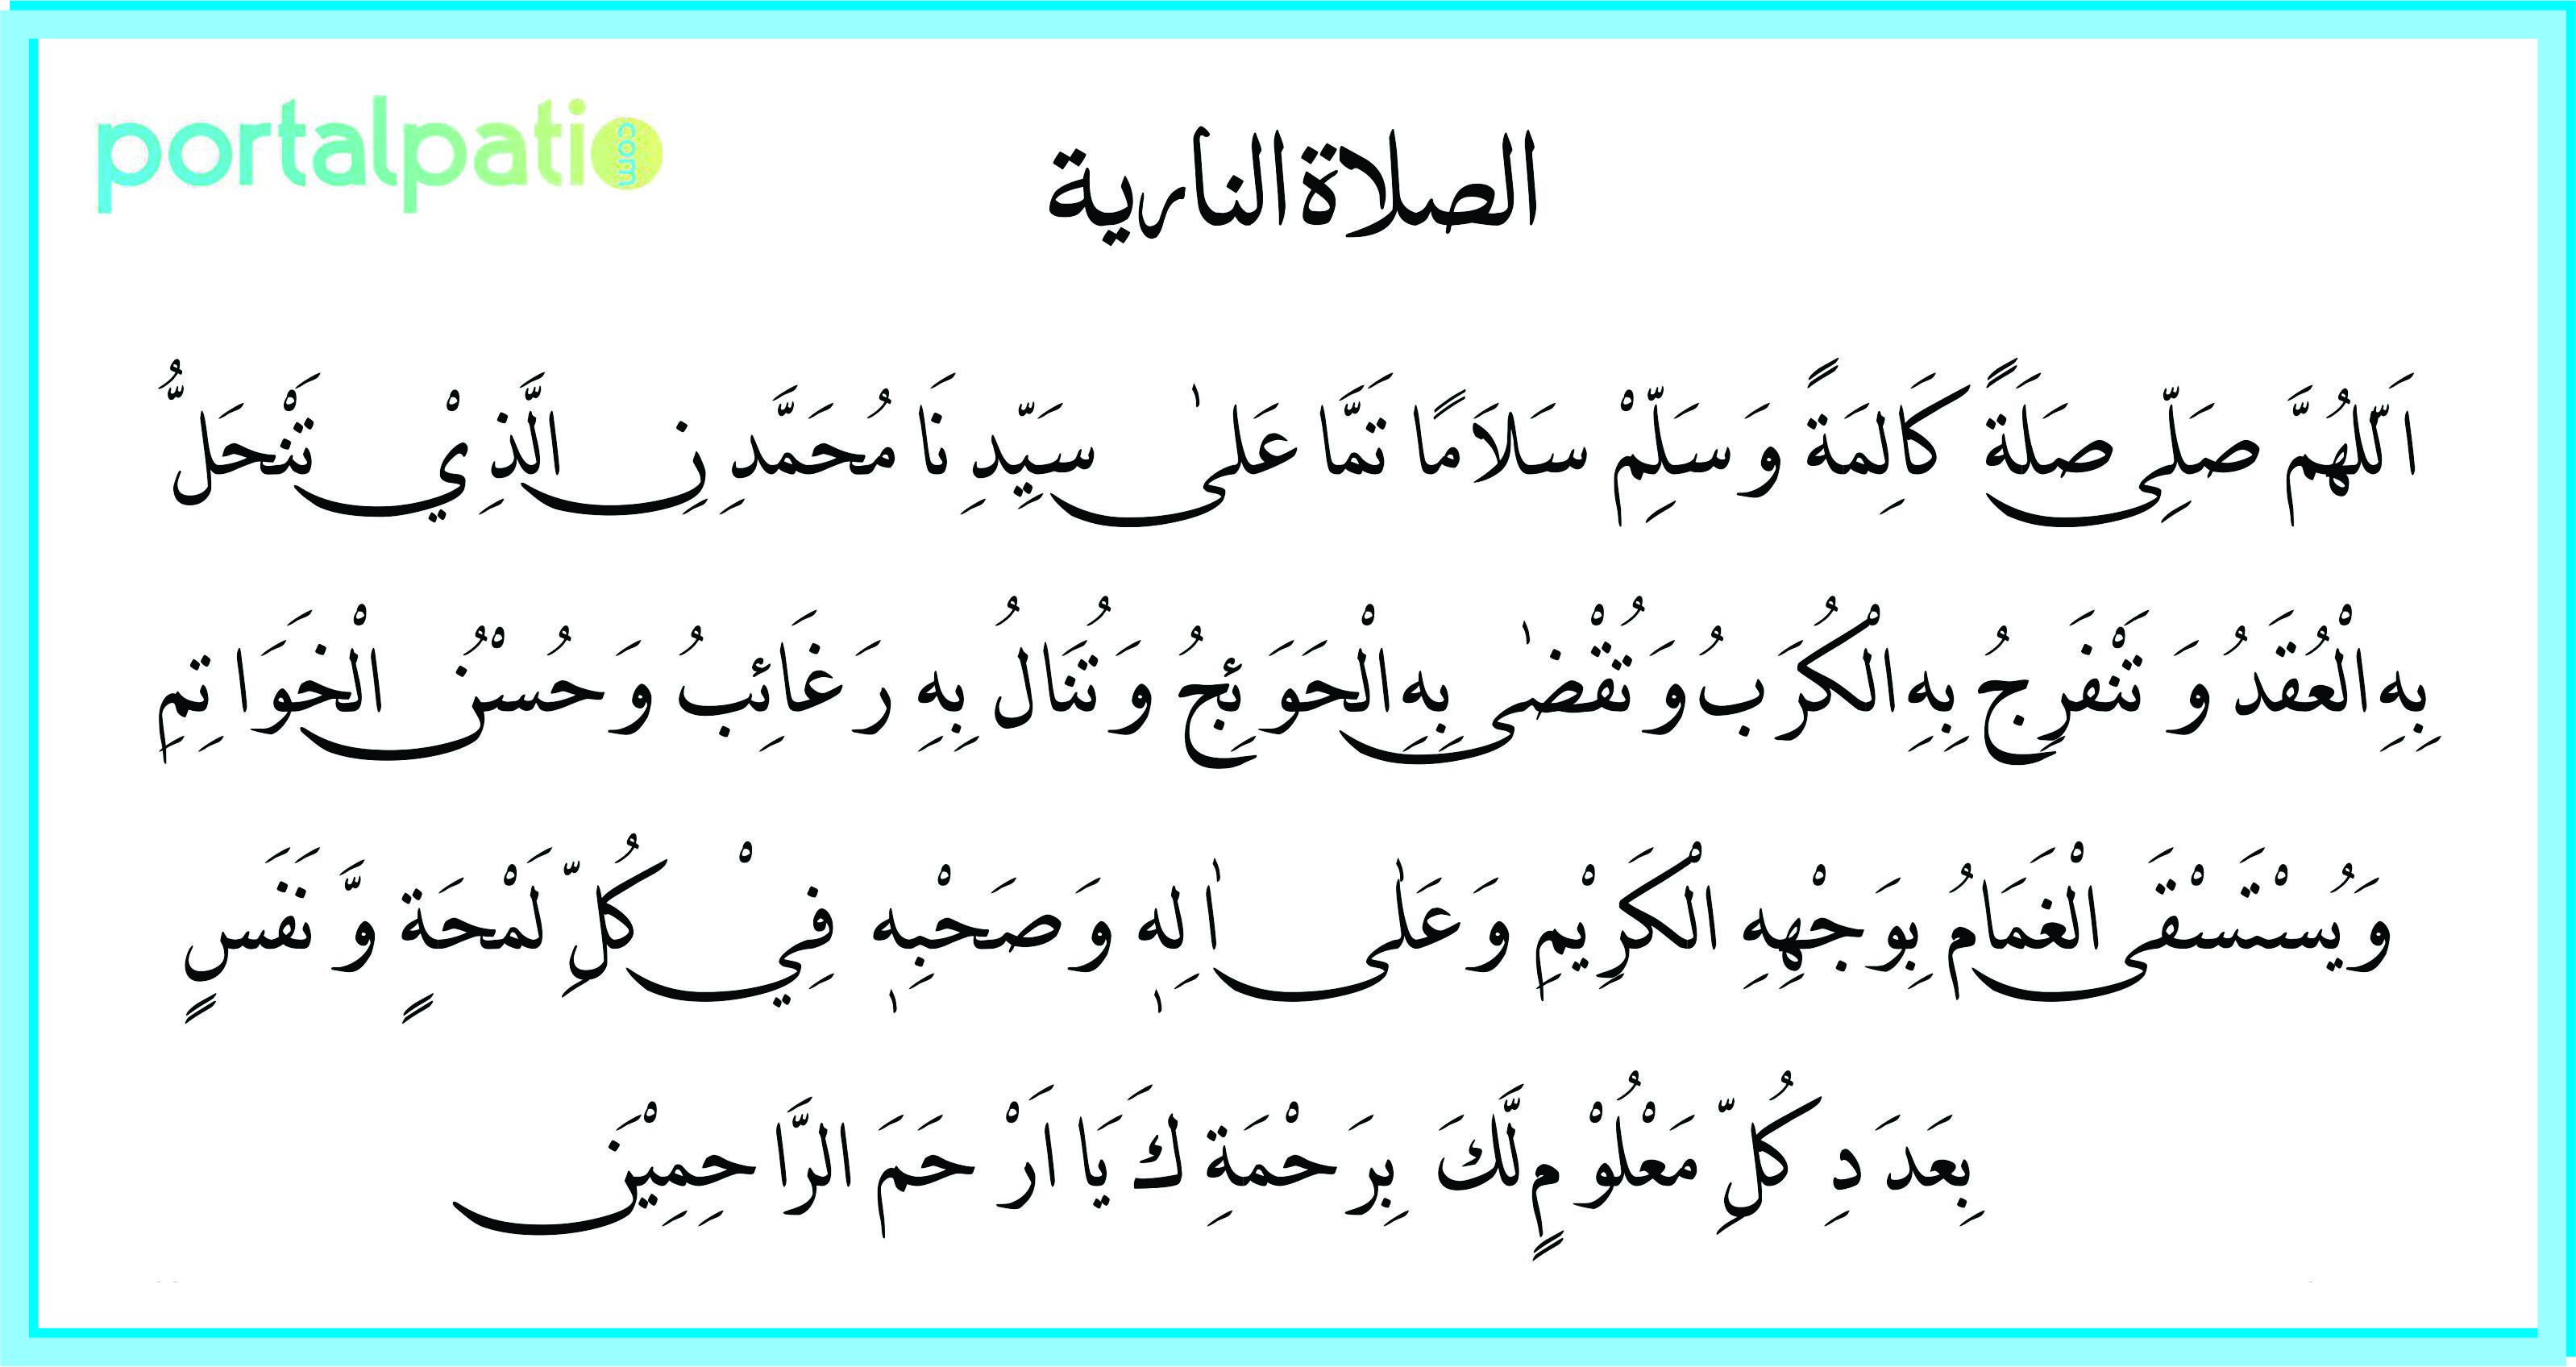 portalpatio.com
الصلاة النارية
اَللّٰهُمَّ صَلِّى صَلَةً كَالِمَةً وَسَلِّمْ سَلَامًا تَمَّا عَلىٰ سَيِّدِنَا مُحَمَّدِ نِ الَّذِيْ تَنْحَلُّ
بِهِ الْعُقَدُ وَ تَنْفَرِجُ بِهِ الْكُرَبُ وَتُقْضٰى بِهِ الْحَوَئِجُ وَتُنَالُ بِهِ رَغَائِبُ وَحُسْنُ الْخَوَاتِمِ
وَيُسْتَسْقَى الْغَمَامُ بِوَجْهِهِ الْكَرِيْمِ وَعَلٰى اٰلِهٖ وَصَحْبِهٖ فِيْ كُلِّ لَمْحَةٍ وَّنَفَسٍ
بِعَدَدِ كُلِّ مَعْلُوْمٍ لَّكَ بِرَحْمَةِكَ يَا اَرْحَمَ الرَّاحِمِيْنَ